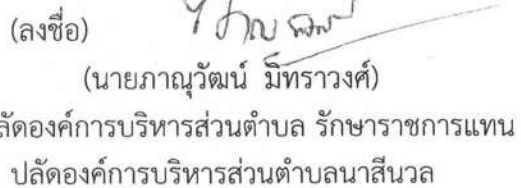 (ลงชื่อ)
(นายภาณุวัฒน์ มิทราวงศ์)
ลัดองค์การบริหารส่วนตำบล รักษาราชการแทน
ปลัดองค์การบริหารส่วนตำบลนาสีนวล